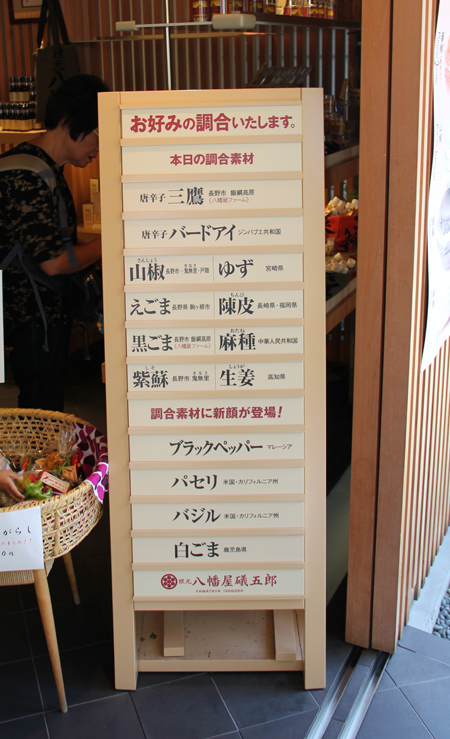 お好みの調合いたします。
本日の調合素材
唐辛子 三鷹 長野市 飯綱高原
(八幡屋ファーム)
唐辛子 バードアイ ジンバブエ共和国
さんしょう
山椒 長野市・鬼無里・戸隠 ゆず 宮崎県
えごま 長野県 駒ヶ根市
ちんぴ
陳皮 長崎県・福岡県
黒ごま 長野市 飯綱高原
(八幡屋ファーム)
おたね
麻種 中華人民共和国
しそ
紫蘇 長野市 鬼無里
しょうが
生姜 高知県
調合素材に新顔が登場！
ブラックペッパー マレーシア
パセリ 米国・カリフォルニア州
バジル 米国・カリフォルニア州
白ごま 鹿児島県
根元 八幡屋礒五郎
YAWATAYA ISOGORO
がらし